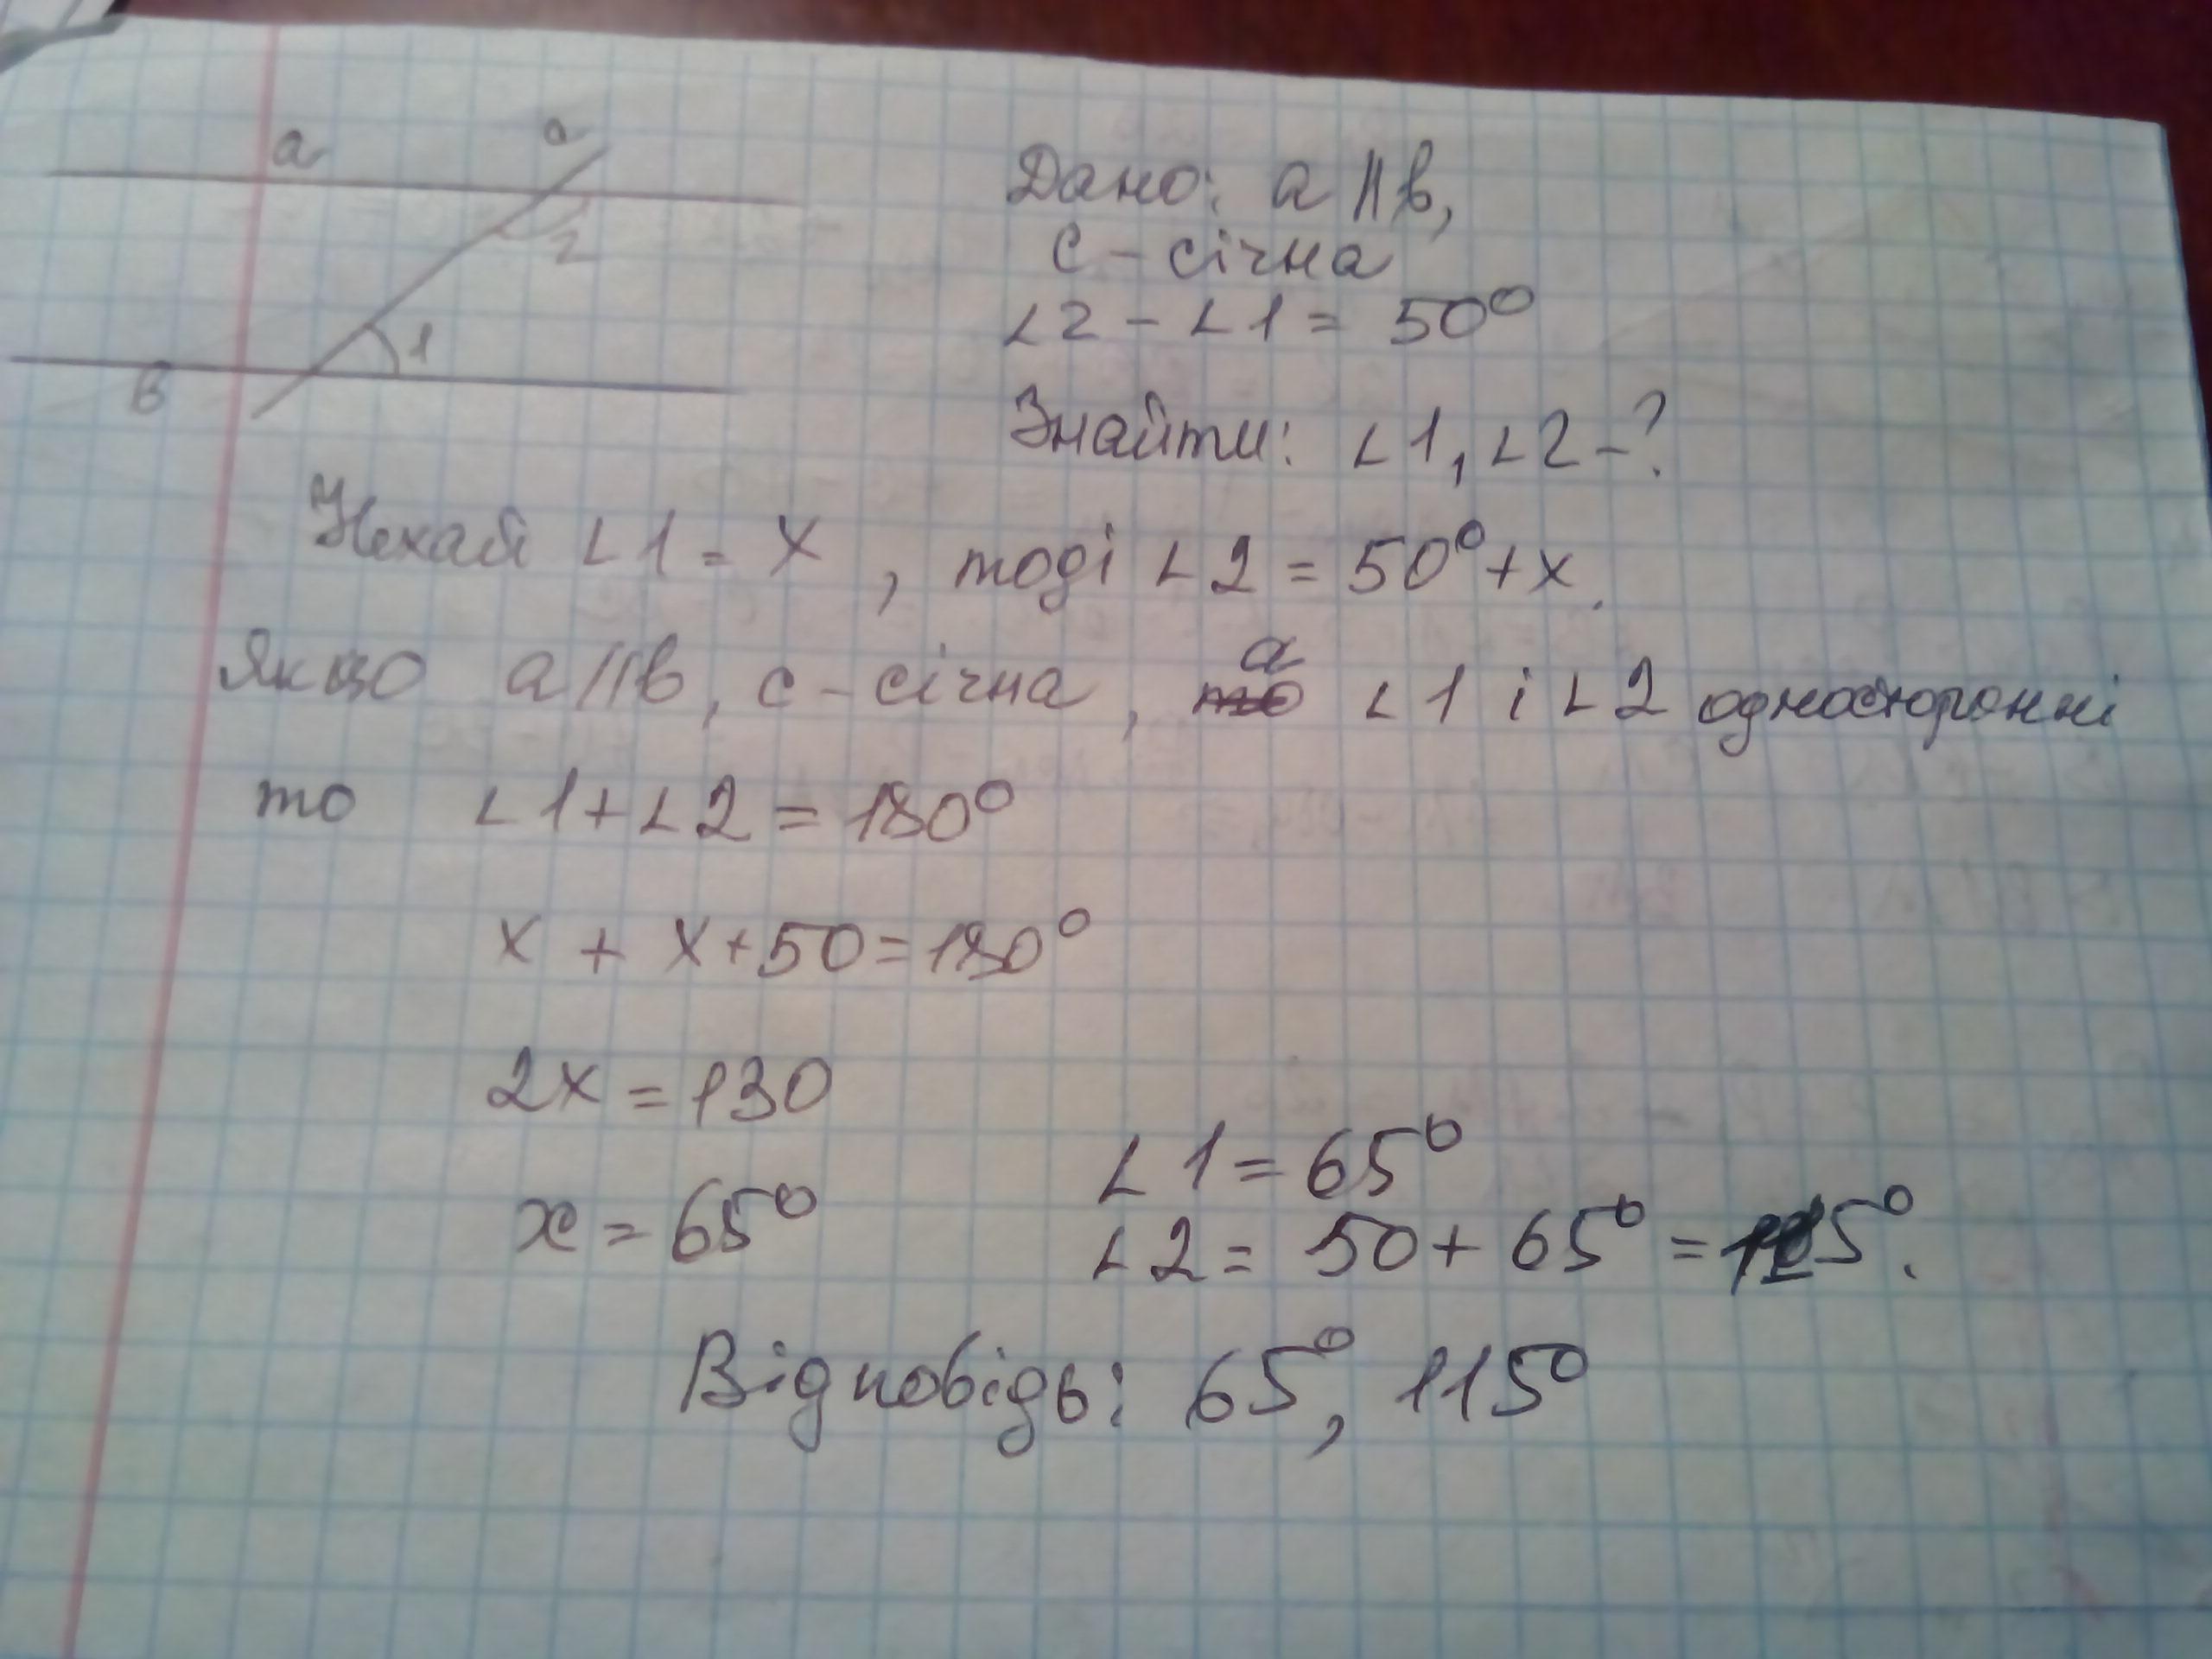 a
c
2
1
в
Дано: a || в,
c - січна
∠2 - ∠1 = 50°
Знайти: ∠1, ∠2 - ?
Нехай ∠1 = x, тоді ∠2 = 50° + x.
Якщо a || в, c - січна, а ∠1 і ∠2 односторонні
то ∠1 + ∠2 = 180°
x + x + 50 = 180°
2x = 130
x = 65°
∠1 = 65°
∠2 = 50 + 65° = 115°.
Відповідь: 65°, 115°